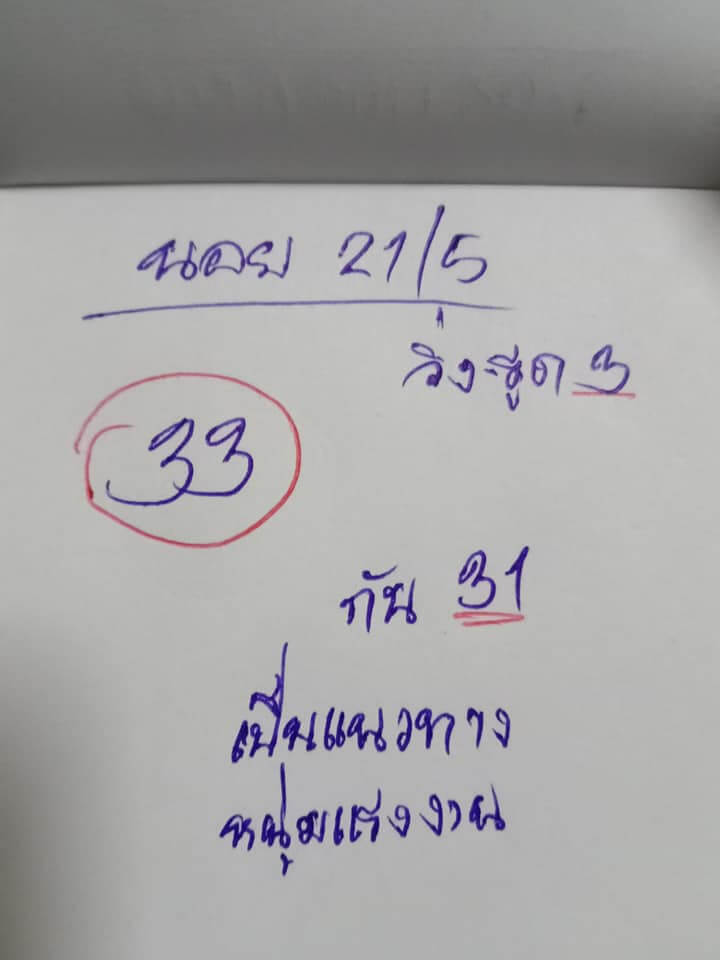 นอย 21/5
วิ่ง-รูด 3
33
กัน 31
เป็นแนวทาง
หนุ่มแรงงาน